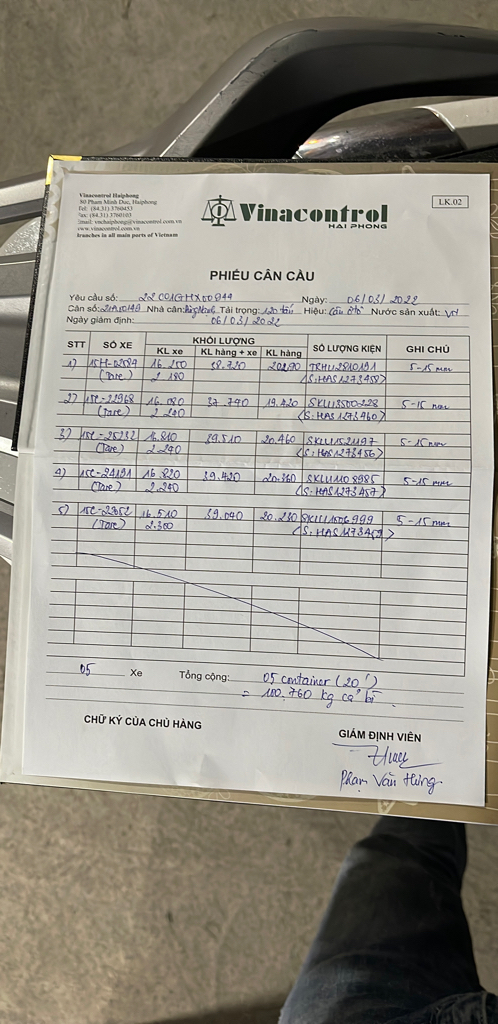 Vinacontrol Haiphong
80 Pham Minh Duc, Haiphong
Tel: (84.31) 3760453
Fax: (84.31) 3760103
Email: vnchaiphong@vinacontrol.com.vn
www.vinacontrol.com.vn
Branches in all main ports of Vietnam
Vinacontrol
HAI PHONG
LK.02
PHIẾU CÂN CẦU
Yêu cầu số: Ngày: 06/03/2022
Cân số: Nhà cân: Tải trọng: 120 tấn Hiệu: Cân ôtô Nước sản xuất: VN
Ngày giám định: 06/03/2022
STT SỐ XE KHỐI LƯỢNG SỐ LƯỢNG KIỆN GHI CHÚ
KL xe KL hàng + xe KL hàng
1) 15H-02584 16.250 38.720 5-15 mm
(Tare) 2.180 (S: HAS1273458)
2) 15C-22968 16.080 37.740 19.420 SKLU3500228 5-15 mm
(Tare) 2.240 (S: HAS1273460)
3) 15C-25232 16.810 39.510 20.460 SKLU1521197 5-15 mm
(Tare) 2.240 (S: HAS1273456)
4) 15C-24191 16.820 39.420 20.360 SKLU1108985 5-15 mm
(Tare) 2.240 (S: HAS1273457)
5) 16.510 39.040 20.230 SKLU1506999 5-15 mm
(Tare) 2.300
05 Xe Tổng cộng: 05 container (20')
= 100.760 kg cả bì
CHỮ KÝ CỦA CHỦ HÀNG
GIÁM ĐỊNH VIÊN
Phạm Văn Hùng